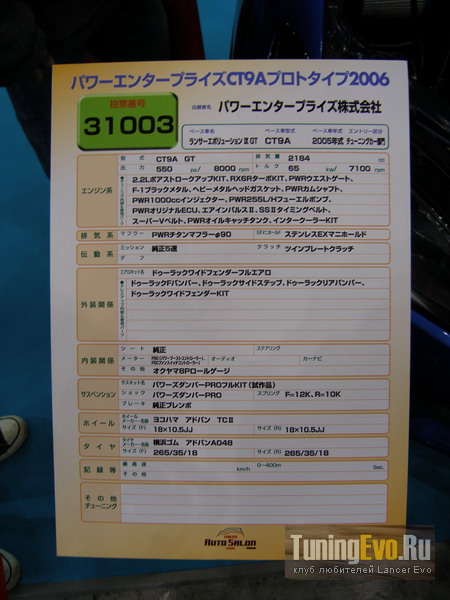 パワーエンタープライズCT9Aプロトタイプ2006
投票番号
31003
出展者名 パワーエンタープライズ株式会社
ベース車名 ベース車型式 ベース車年式 エントリー区分
ランサーエボリューションⅨ GT CT9A 2005年式 チューニングカー部門
エンジン系
型式 CT9A GT 排気量 2184 cc
出力 550 ps/ 8000 rpm トルク 65 kw/ 7100 rpm
2.2Lボアストロークアップ KIT、RX6RターボKIT、PWRウエストゲート、
F-1ブラックメタル、ヘビーメタルヘッドガスケット、PWRカムシャフト、
PWR1000ccインジェクター、PWR255L/Hフューエルポンプ、
PWRオリジナルECU、エアインパルスⅡ、SSⅡタイミングベルト、
スーパーVベルト、PWRオイルキャッチタンク、インタークーラーKIT
排気系 マフラー PWRチタンマフラーφ90 EXマニホールド ステンレスEXマニホルド
伝動系 ミッション 純正5速 クラッチ ツインプレートクラッチ
デフ
外装関係
エアロキット名 ドゥーラックワイドフェンダーフルエアロ
ドゥーラックFバンパー、ドゥーラックサイドステップ、ドゥーラックリアバンパー、
ドゥーラックワイドフェンダーKIT
内装関係
シート 純正 ステアリング
メーター オーディオ カーナビ
その他 オクヤマ8Pロールゲージ
サスペンション
サスキット名 パワーズダンパーPROフルKIT(試作品)
ショック パワーズダンパーPRO スプリング F=12K、R=10K
ブレーキ 純正ブレンボ
ホイール
ホイールメーカー・名称 ヨコハマ アドバン TCⅡ
サイズ(F) 18×10.5JJ サイズ(R) 18×10.5JJ
タイヤ
タイヤメーカー・名称 横浜ゴム アドバンA048
サイズ(F) 265/35/18 サイズ(R) 265/35/18
記録等 最高速 km/h 0〜400m Sec.
その他チューニング
TOKYO
AUTO SALON
TuningEvo.Ru
клуб любителей Lancer Evo